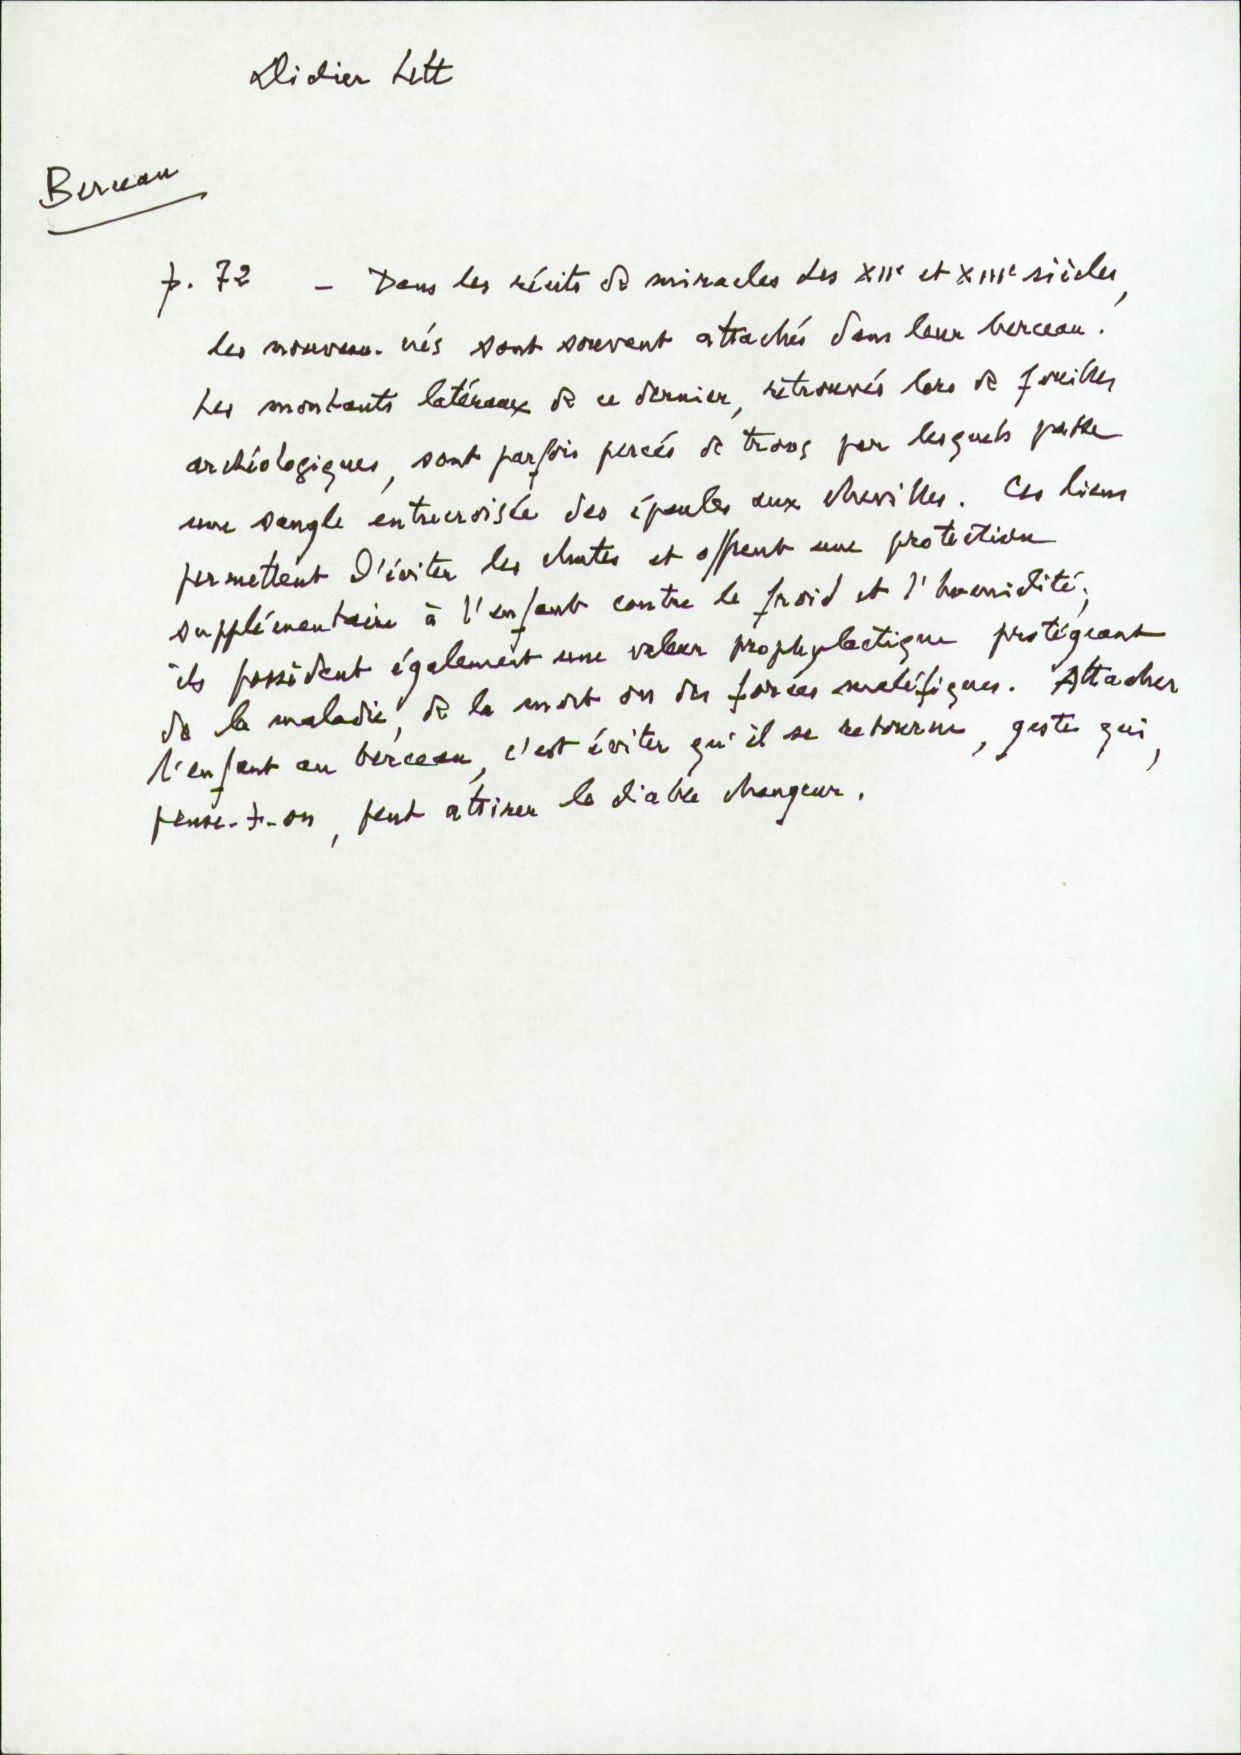 Didier Lett
Berceau
p. 72 - Dans les récits de miracles des XIIe et XIIIe siècles,
les nouveau-nés sont souvent attachés dans leur berceau.
Les montants latéraux de ce dernier, retrouvés lors de fouilles
archéologiques, sont parfois percés de trous par lesquels passe
une sangle entrecroisée des épaules aux chevilles. Ces liens
permettent d'éviter les chutes et offrent une protection
supplémentaire à l'enfant contre le froid et l'humidité;
ils possèdent également une valeur prophylactique protégeant
de la maladie, de la mort ou des forces maléfiques. Attacher
l'enfant au berceau, c'est éviter qu'il se retourne, geste qui,
pense-t-on, peut attirer le diable changeur.